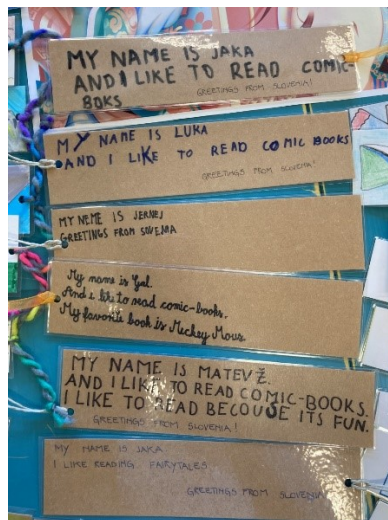 MY NAME IS JAKA
AND I LIKE TO READ COMIC-
BOKS
GREETINGS FROM SLOVENIA!
MY NAME IS LUKA
AND I LIKE TO READ COMIC BOOKS
GREETINGS FROM SLOVENIA!
MY NEME IS JERNEJ
GREETINGS FROM SOVENIA
My name is Gal.
And i like to read comic-books.
My favorite book is Mickey Mous.
MY NAME IS MATEVŽ.
AND I LIKE TO READ COMIC-BOOKS.
I LIKE TO READ BECOUSE ITS FUN.
GREETINGS FROM SLOVENIA!
MY NAME IS JAKA
I LIKE READING FAIRYTALES
GREETINGS FROM SLOVENIA